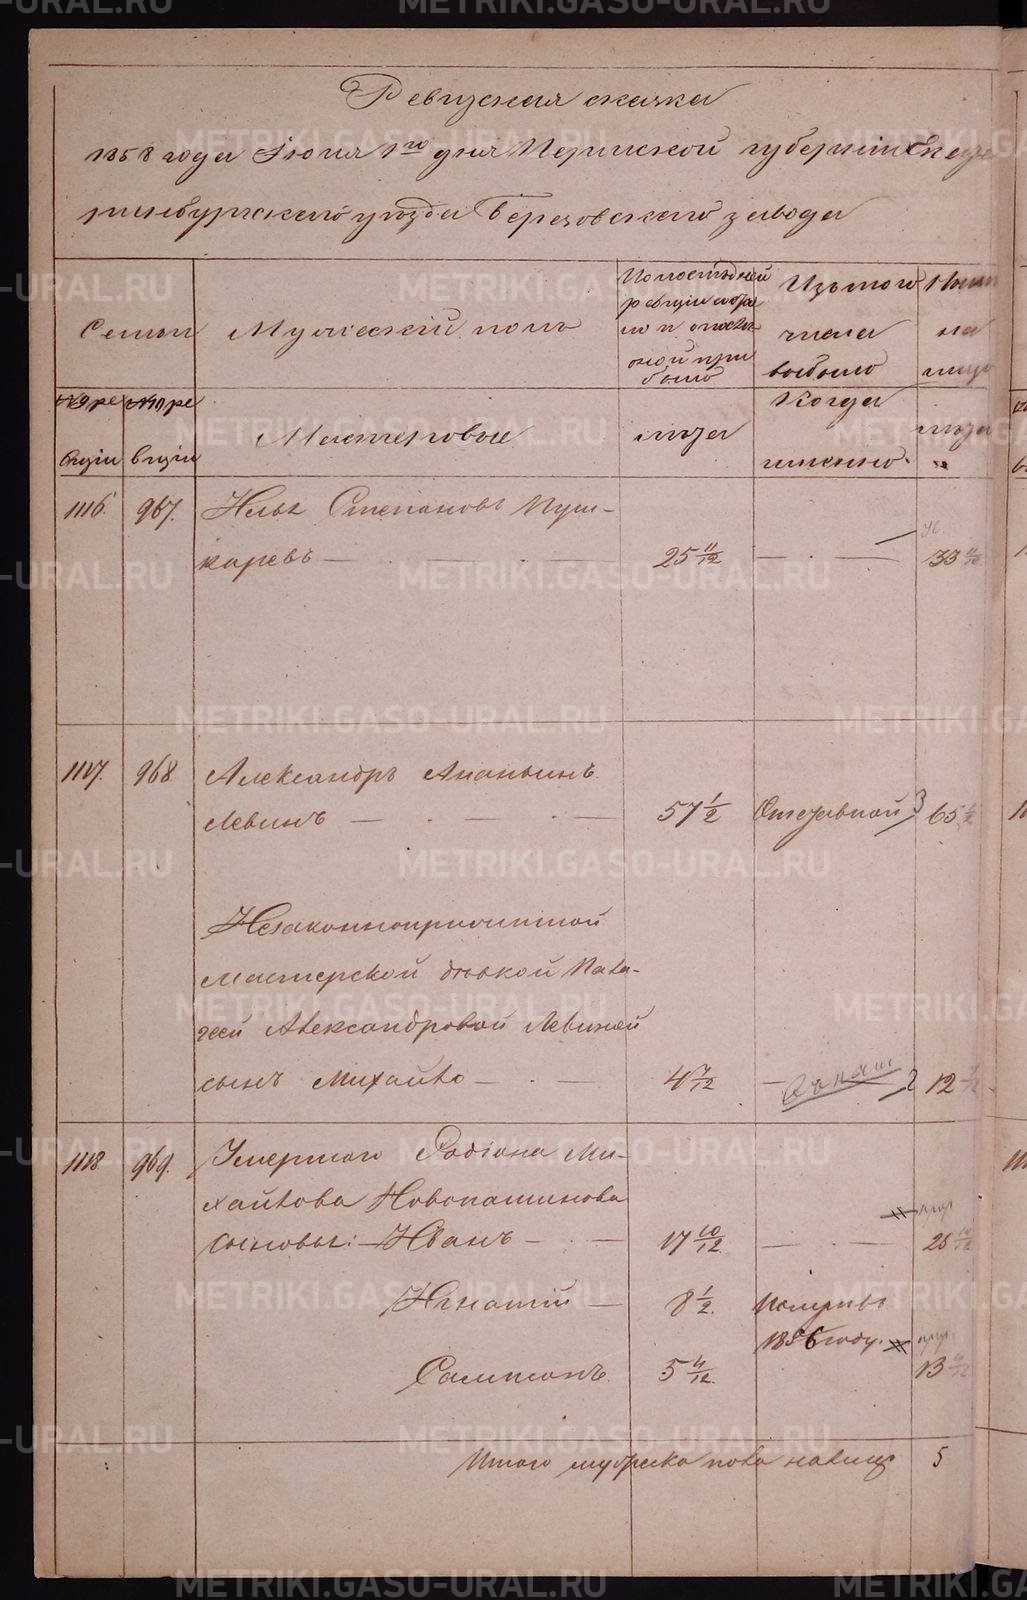 Ревизская сказка
1858 года Июня 1го дня Пермской губернии Екате
ринбургскаго уезда Березовскаго завода
Семьи
Мужескій полъ
По последней
ревизіи состоя
ло и после
оной при
было
Изъ того
числа
выбыло
Ныне
на
лицо
№ 9 ре
визіи
№ 10 ре
визіи
Мастеровые
лета
Когда
именно.
лета
1116. 967. Илья Степановъ Пуш-
каревъ — 25 11/12 — 33 11/12
1117. 968 Александръ Ананьинъ
Левинъ — 57 1/2 Отставной 3 65 1/2
Незаконноприжитой
мастерской девкой Пела-
геей Александровой Левиной
сынъ Михайло — 4 7/12 — 2 12 7/12
1118 969. Умершаго Родіона Ми-
хайлова Новопашинова
сыновья: Иванъ — 17 10/12 — 25 10/12
Игнатій — 8 1/2. Померъ въ
1856 году.
Самсонъ 5 4/12 13 4/12
Итого мужеска пола налицо 5
METRIKI.GASO-URAL.RU